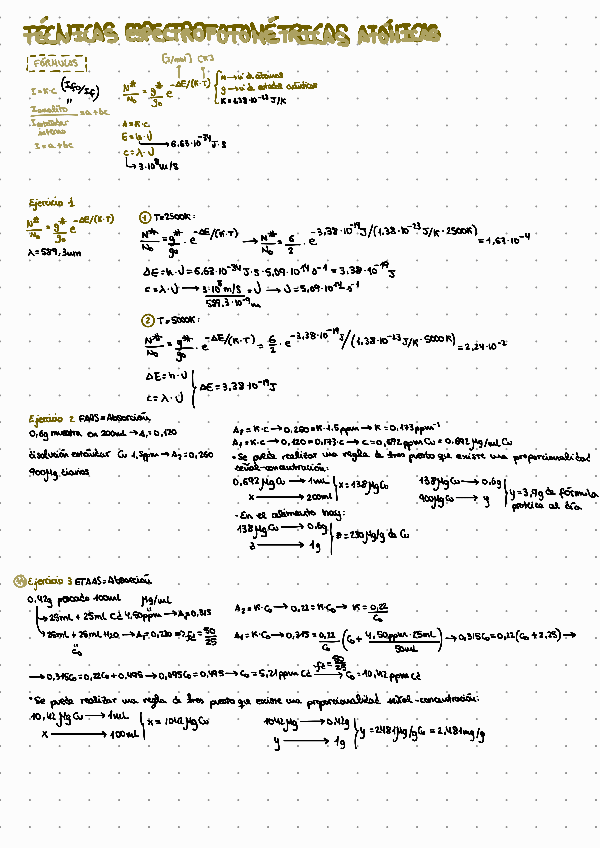 TÉCNICAS ESPECTROFOTOMÉTRICAS ATÓMICAS
FÓRMULAS
[J/mol] [K]
I = K·C (If0/If)
N*/N0 = g*/g0 e^-ΔE/(K·T)
n → nº de átomos
g → nº de estados cuánticos
K = 1,38·10^-23 J/K
I analito / I estándar interno = a + bc
I = a + bc
A = K·C
E = h·ν → 6,63·10^-34 J·s
c = λ·ν
→ 3·10^8 m/s
Ejercicio 1
N*/N0 = g*/g0 e^-ΔE/(K·T)
λ = 589,3nm
① T=2500K:
N*/N0 = g*/g0 · e^-ΔE/(K·T) → N*/N0 = 6/2 · e^-3,38·10^-19 J/(1,38·10^-23 J/K · 2500K) = 1,67·10^-4
ΔE = h·ν = 6,63·10^-34 J·s · 5,09·10^14 s^-1 = 3,38·10^-19 J
c = λ·ν → 3·10^8 m/s / 589,3·10^-9 m = ν → ν = 5,09·10^14 s^-1
② T=5000K:
N*/N0 = g*/g0 · e^-ΔE/(K·T) = 6/2 · e^-3,38·10^-19 J/(1,38·10^-23 J/K · 5000K) = 2,24·10^-2
ΔE = h·ν
c = λ·ν
ΔE = 3,38·10^-19 J
Ejercicio 2 FAAS = Absorción
0,6g muestra en 200ml → A1 = 0,120
disolución estándar Cu 1,5ppm → A2 = 0,260
900μg diarios
A2 = K·C → 0,260 = K·1,5ppm → K = 0,173ppm^-1
A1 = K·C → 0,120 = 0,173·c → C = 0,692ppm Cu = 0,692μg/ml Cu
• Se puede realizar una regla de tres puesto que existe una proporcionalidad
señal-concentración:
0,692μg Cu → 1ml
x → 200ml
x = 138μg Cu
138μg Cu → 0,6g
900μg Cu → y
y = 3,9g de fórmula
proteica al día
- En el alimento hay:
138μg Cu → 0,6g
z → 1g
z = 230μg/g de Cu
Ejercicio 3 ETAAS = Absorción
0,42g pescado 100ml μg/ml
→ 25ml + 25ml Cd 4,50ppm → A1 = 0,315
→ 25ml + 25ml H2O → A2 = 0,220 → fd = 50/25
C0
A2 = K·C0 → 0,22 = K·C0 → K = 0,22/C0
A1 = K·C0 → 0,315 = 0,22/C0 (C0 + 4,50ppm·25ml/50ml) → 0,315C0 = 0,22(C0 + 2,25) →
→ 0,315C0 = 0,22C0 + 0,495 → 0,095C0 = 0,495 → C0 = 5,21ppm Cd → fd = 50/25 C0 = 10,42ppm Cd
• Se puede realizar una regla de tres puesto que existe una proporcionalidad señal-concentración:
10,42μg Cu → 1ml
x → 100ml
x = 1042μg Cu
1042μg → 0,42g
y → 1g
y = 2481μg/g Co = 2,481mg/g